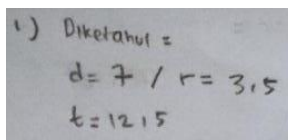 1.) Diketahui =
d = 7 / r = 3,5
t = 12,5